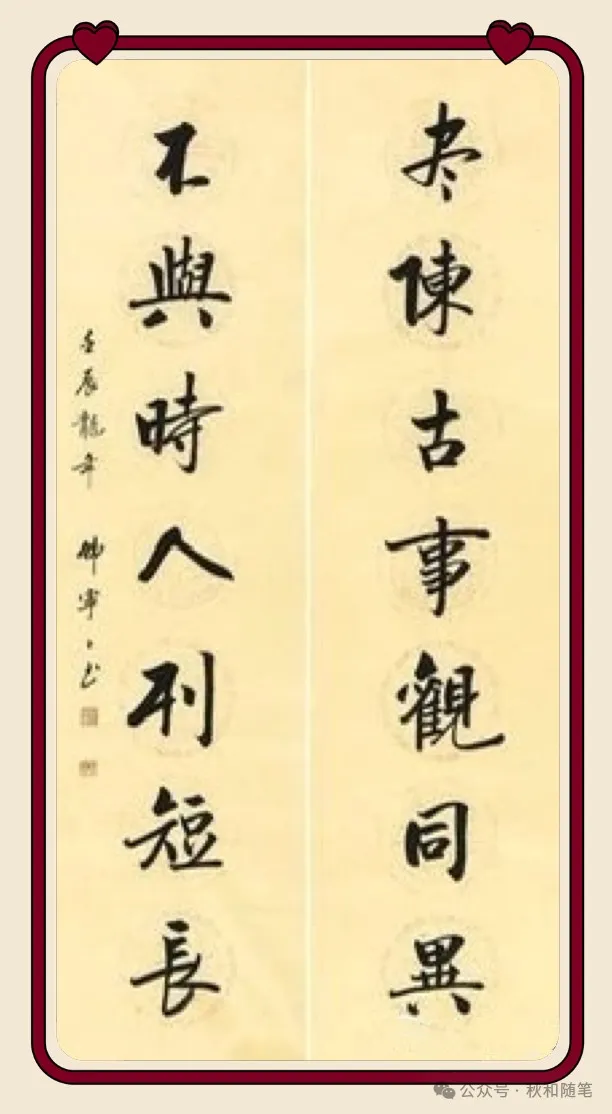 尽陳古事觀同異
不與時人刊短長
壬辰龍年
寧
书
公众号·秋和随笔